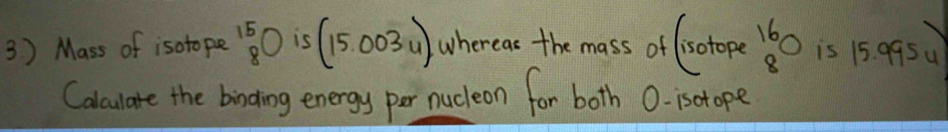 3.) Mass of isotope ¹⁵₈O is (15.003 u) whereas the mass of (isotope ¹⁶₈O is 15.995 u)
Calculate the binding energy per nucleon for both O-isotope.